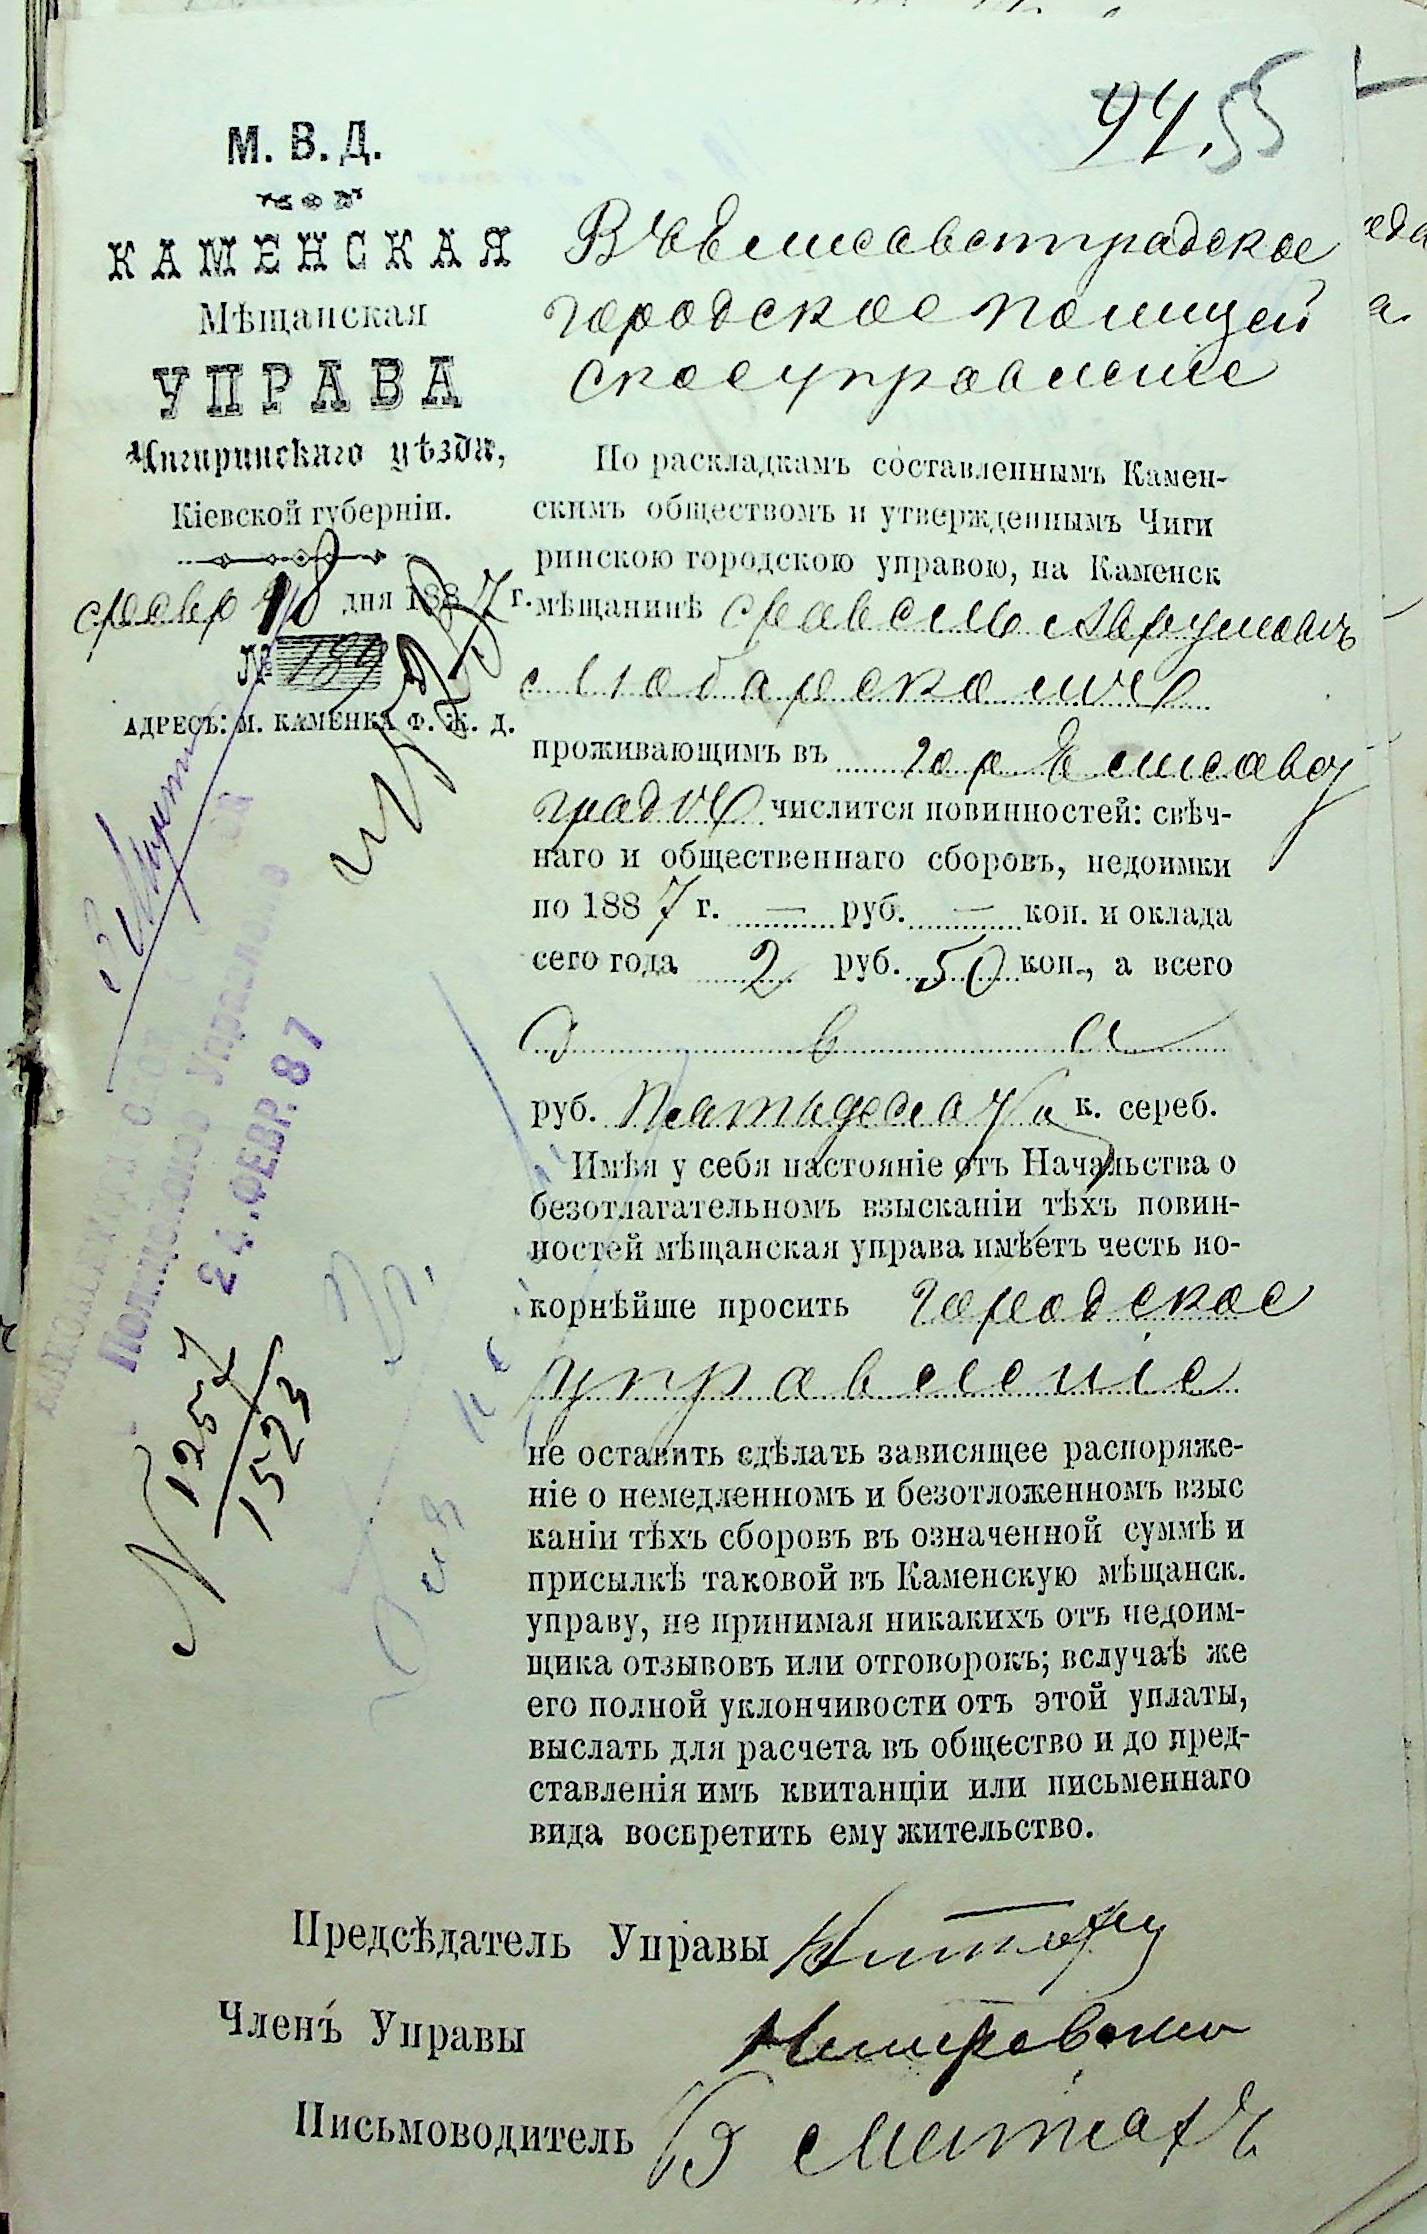 94. 55
М. В. Д.
КАМЕНСКАЯ
Мѣщанская
УПРАВА
Чигиринскаго уѣзда,
Кіевской губерніи.
февр 18 дня 1887 г.
№ 189
АДРЕСЪ: М. КАМЕНКА Ф. Ж. Д.
Въ Елисаветградское
городское полицей
ское управленіе
По раскладкамъ составленнымъ Камен-
скимъ обществомъ и утвержденнымъ Чиги
ринскою городскою управою, на Каменск
мѣщанинѣ
проживающимъ въ гор Елисавет
градѣ числится повинностей: свѣч-
наго и общественнаго сборовъ, недоимки
по 1887 г. — руб. — коп. и оклада
сего года 2 руб. 50 коп., а всего
два
руб. пятьдесять к. сереб.
Имѣя у себя настояніе отъ Начальства о
безотлагательномъ взысканіи тѣхъ повин-
ностей мѣщанская управа имѣетъ честь по-
корнѣйше просить городское
управленіе
не оставить сдѣлать зависящее распоряже-
ніе о немедленномъ и безотложенномъ взыс
каніи тѣхъ сборовъ въ означенной суммѣ и
присылкѣ таковой въ Каменскую мѣщанск.
управу, не принимая никакихъ отъ недоим-
щика отзывовъ или отговорокъ; вслучаѣ же
его полной уклончивости отъ этой уплаты,
выслать для расчета въ общество и до пред-
ставленія имъ квитанціи или письменнаго
вида воспретить ему жительство.
Полицейское Управленіе
24. ФЕВР. 87
N 1257
1523
Предсѣдатель Управы
Членъ Управы
Письмоводитель